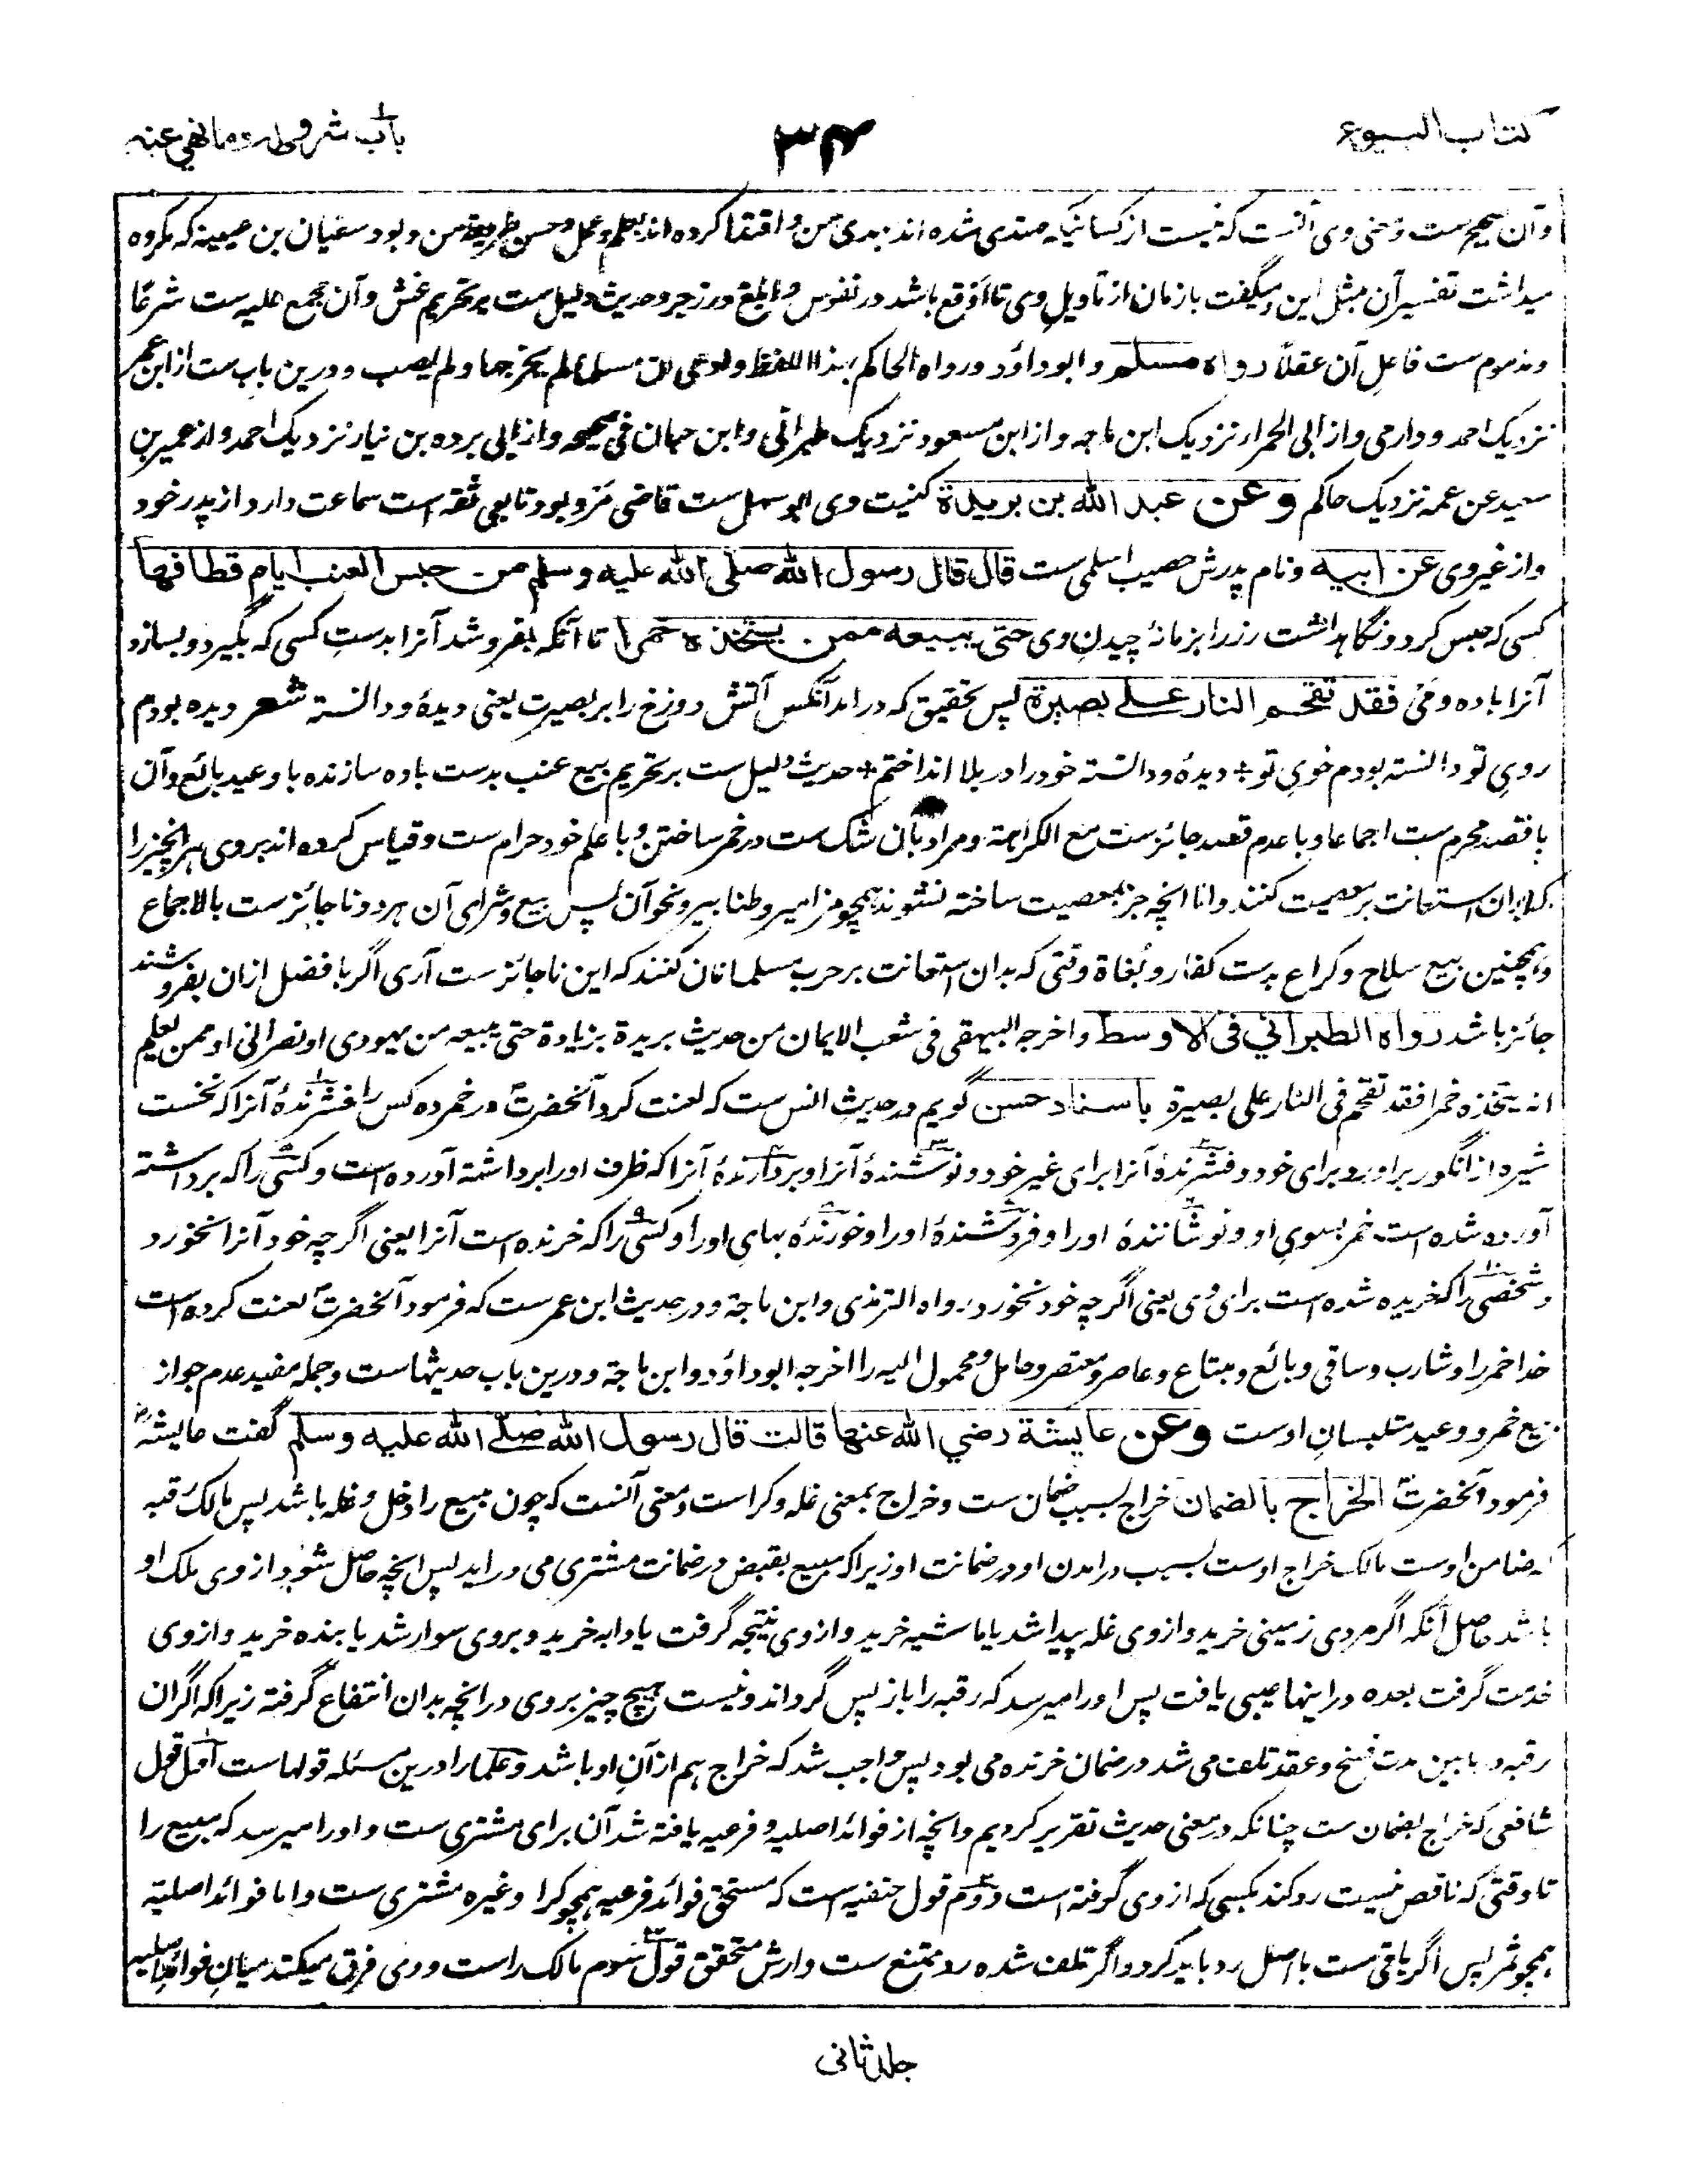 کتاب البیوع
۳۴
باب شروطه وما نهي عنه
وآن صحیح ست ومعنی وی آنست که نیست از کسانیکه مهتدی شده اند بهدی من و اقتفا کرده اند بعلم و عمل وحسن طریقه من و بود سفیان بن عیینه که مکروه
میداشت تفسیر آن بمثل این ومیگفت بازمان از تأویل وی تا اوقع باشد در نفوس و ابلغ در زجر وحدیث دلیل ست بر تحریم غش وآن مجمع علیه ست شرعًا
ومذموم ست فاعلِ آن عقلاً رواه مسلم وابوداود ورواه الحاکم بهذا اللفظ وادعی ان مسلما لم یخرجها ولم یصب ودرین باب ست از ابن عمر
نزدیک احمد ودارمی واز ابی الحمرا نزدیک ابن ماجه واز ابن مسعود نزدیک طبرانی وابن حبان فی صحیحه واز ابی برده بن نیار نزدیک احمد واز عمیر بن
سعید عن عمه نزدیک حاکم وعن عبد الله بن بریدة کنیت وی ابو سهل ست قاضی مَرْو بود تابعی ثقه است سماعت دارد از پدر خود
واز غیر وی عن ابیه ونام پدرش حصیب اسلمی ست قال قال رسول الله صلی الله علیه وسلم من حبس العنب ایام قطافها
کسی که حبس کرد ونگاهداشت رز را بزمانۀ چیدنِ وی حتی یبیعه ممن یتخذه خمرا تا آنکه بفروشد آنرا بدستِ کسی که بگیرد وبسازد
آنرا باده ومَیْ فقد تقحم النار علی بصیرة پس تحقیق که درامد آنکس آتش دوزخ را بر بصیرت یعنی دیدۀ ودانسته شعر دیده بودم
رویِ تو دانسته بودم خویِ تو + دیدۀ ودانسته خود را در بلا انداختم + حدیث دلیل ست بر تحریم بیع عنب بدست باده سازنده با وعید بائع وآن
با قصد محرم ست اجماعا وبا عدم قصد جائزست مع الکراهة ومراد بآن شک ست در خمر ساختن وبا علم خود حرام ست وقیاس کرده اند بروی هر آنچیز را
که بدان استعانت بر معصیت کنند واما انچه جز بمعصیت ساخته نشوند همچو مزامیر وطنابیر ونحو آن پس بیع وشرای آن هر دو ناجائزست بالاجماع
وهمچنین بیع سلاح وکراع بدست کفار وبُغاة وقتی که بدان استعانت بر حرب مسلمانان کنند که این ناجائزست آری اگر با فضل ازان بفروشند
جائز باشد رواه الطبراني فی الاوسط واخرجه البیهقی فی شعب الایمان من حدیث بریدة بزیادة حتی یبیعه من یهودی او نصرانی او ممن یعلم
انه یتخذه خمرا فقد تقحم فی النار علی بصیرة باسناد حسن گویم در حدیث انس ست که لعنت کرد آنحضرت در خمر ده کس را فشرندۀ آنرا که نخست
شیره از انگور براورد برای خود وفشرندۀ آنرا برای غیر خود ونوشندۀ آنرا وبردارندۀ آنرا که ظرف او را برداشته آورده است وکسی را که برداشته
آورده شده است خمر بسوی او ونوشانندۀ او را وفروشندۀ او را وخورندۀ بهای او را وکسی را که خرنده است آنرا یعنی اگرچه خود آنرا نخورد
وشخصی را که خریده شده است برای وی یعنی اگرچه خود نخورد رواه الترمذی وابن ماجة ودر حدیث ابن عمر ست که فرمود آنحضرت لعنت کرده است
خدا خمر را وشارب وساقی وبائع ومبتاع وعاصر ومعتصر وحامل ومحمول الیه را اخرجه ابوداود وابن ماجة ودرین باب حدیثهاست وجمله مفید عدم جواز
بیع خمر ووعید متلبسانِ اوست وعن عایشة رضي الله عنها قالت قال رسول الله صلی الله علیه وسلم گفت عایشه رض
فرمود آنحضرت الخراج بالضمان خراج بسبب ضمان ست وخراج بمعنی غله وکراست ومعنی آنست که چون مبیع را دخل وغله باشد پس مالک رقبه
که ضامن اوست مالک خراج اوست بسبب درامدن او در ضمانت او زیرا که مبیع بقبض در ضمانت مشتری می دراید پس انچه حاصل شود از وی ملک او
باشد حاصل آنکه اگر مردی زمینی خرید واز وی غله پیدا شد یا ماشیه خرید واز وی نتیجه گرفت یا دابه خرید وبروی سوار شد یا بنده خرید واز وی
خدمت گرفت بعده دراینها عیبی یافت پس او را میرسد که رقبه را باز پس گرداند ونیست هیچ چیز بروی درانچه بدان انتفاع گرفته زیرا که اگر آن
رقبه در مابین مدت فسخ وعقد تلف می شد در ضمان خرنده می بود پس واجب شد که خراج هم از آنِ او باشد وعلما را درین مسئله قولهاست اول قول
شافعی که خراج بضمان ست چنانکه در معنی حدیث تقریر کردیم وانچه از فوائد اصلیه وفرعیه یافته شد آن برای مشتری ست واو را میرسد که مبیع را
تا وقتی که ناقص نیست رد کند بکسی که از وی گرفته است دوم قول حنفیه است که مستحق فوائد فرعیه همچو کرا وغیره مشتری ست واما فوائد اصلیه
همچو ثمر پس اگر باقی ست با اصل رد باید کرد واگر تلف شده رد ممتنع ست وارش متحقق قول سوم مالک راست ووی فرق میکند میانِ فوائد اصلیه
جلد ثانی